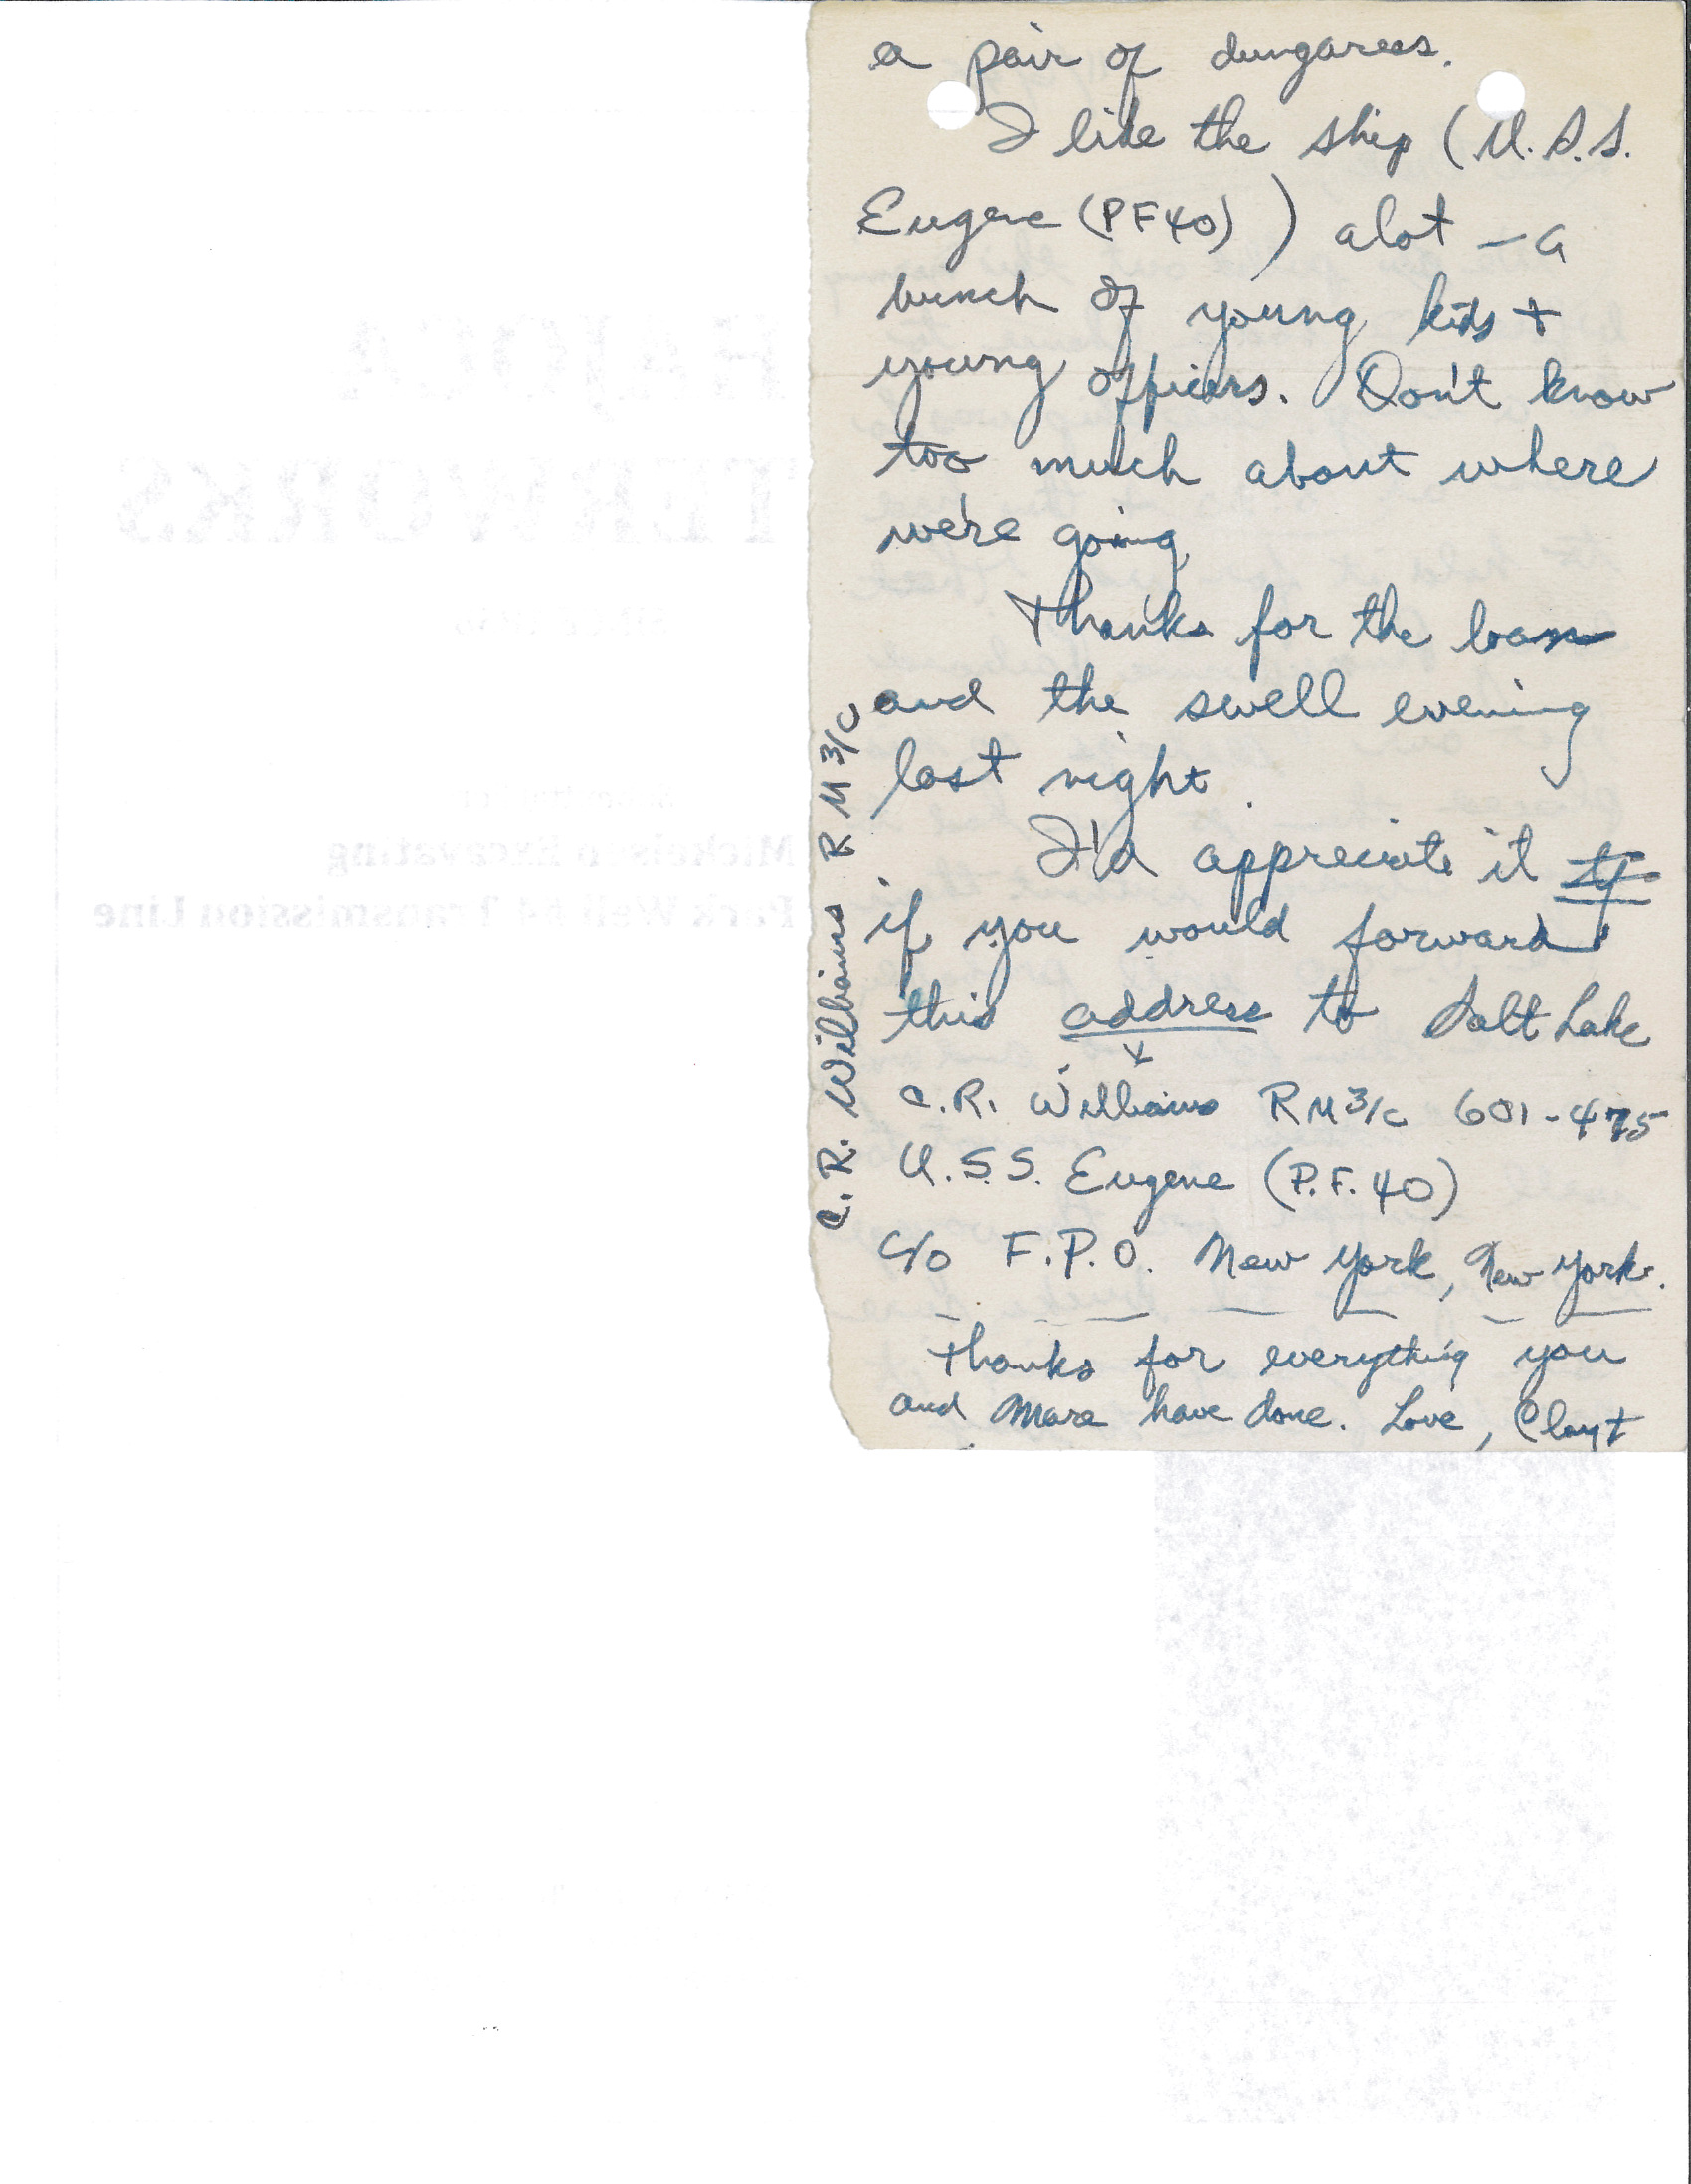 a pair of dungarees.
I like the ship (U.S.S.
Eugene (PF40)) alot - a
bunch of young kids +
young officers. Don't know
too much about where
we're going.
Thanks for the loan
and the swell evening
last night.
I'd appreciate it if
if you would forward
this address to Salt Lake
C.R. Williams RM 3/c 601-475
U.S.S. Eugene (P.F. 40)
c/o F.P.O. New York, New York.
Thanks for everything you
and Mara have done. Love, Clayt
C.R. Williams RM 3/c
Mickelson Excavating
Park Well #4 Transmission Line